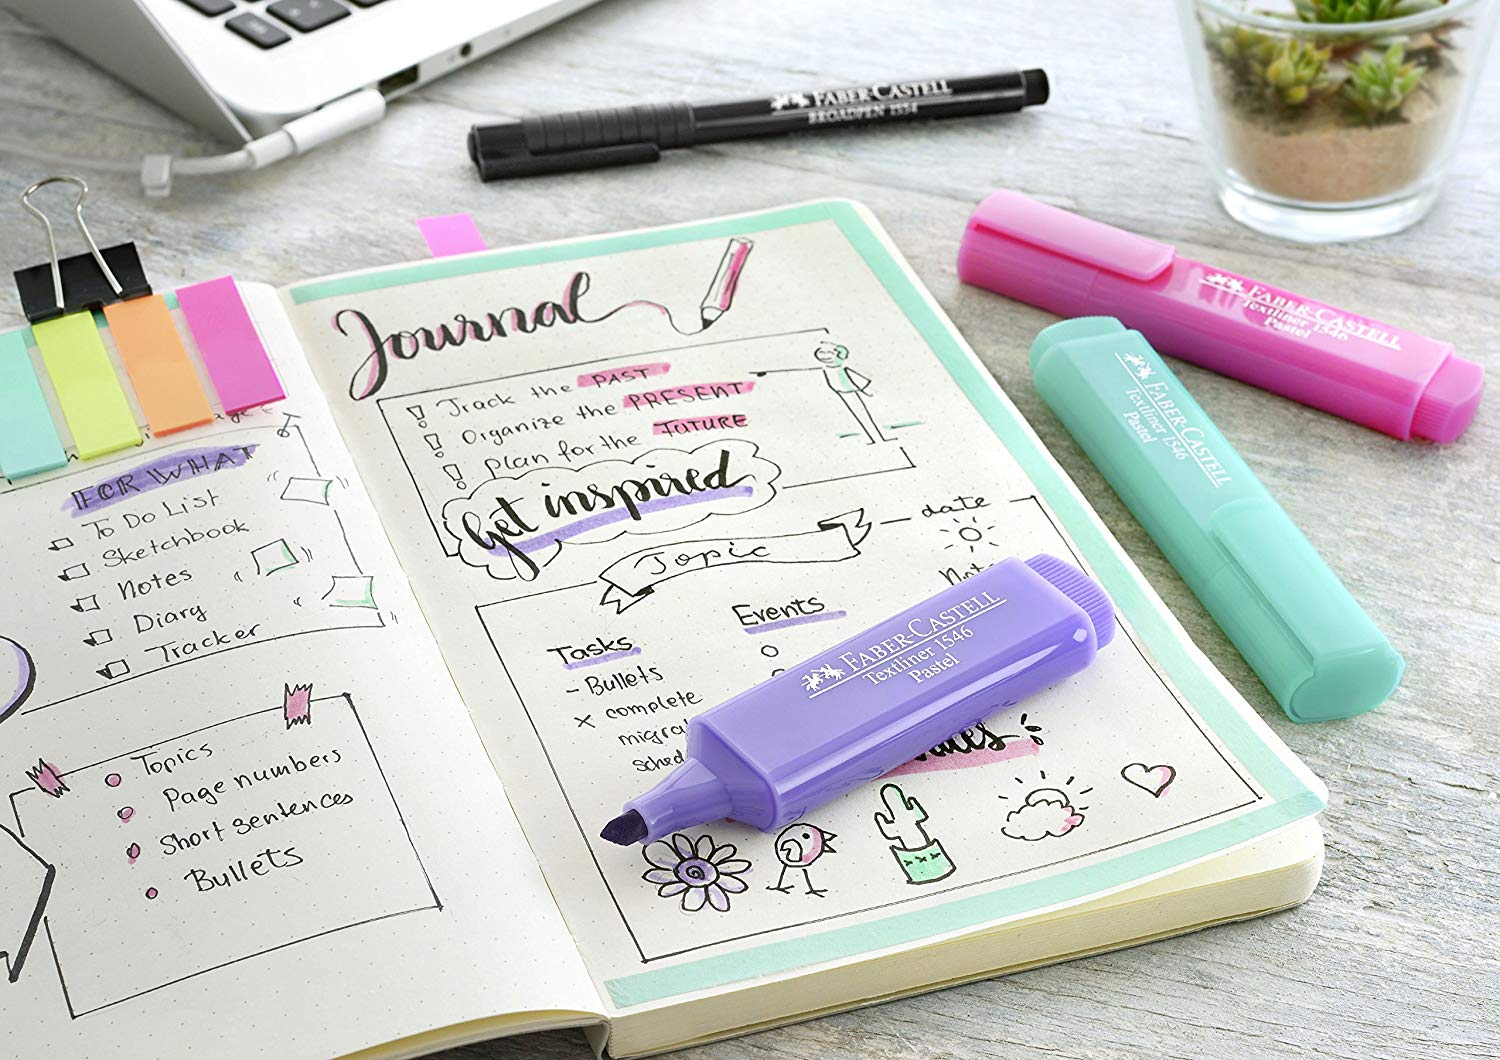 FOR WHAT
To Do List
Sketchbook
Notes
Diary
Tracker
Topics
Page numbers
Short sentences
Bullets
Journal
! Track the PAST
! Organize the PRESENT
! plan for the FUTURE
Get inspired
Topic
date
Tasks
- Bullets
x complete
Events
FABER-CASTELL
BROADPEN 1554
FABER-CASTELL
Textliner 1546
Pastel
FABER-CASTELL
Textliner 1546
Pastel
FABER-CASTELL
Textliner 1546
Pastel